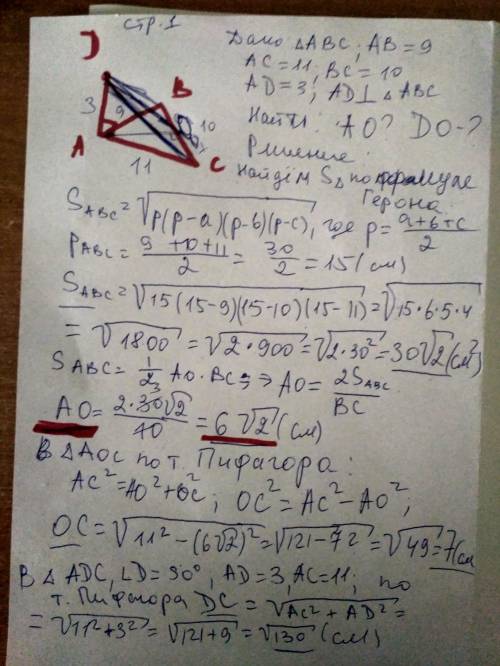 стр. 1
Дано △ABC; AB = 9
AC = 11; BC = 10
AD = 3; AD ⊥ △ABC
Найти: AO? DO-?
Решение:
Найдём S△ по формуле
Герона
D
B
3
9
10
A
11
C
S_ABC = √p(p-a)(p-b)(p-c), где p = a+b+c/2
P_ABC = 9+10+11/2 = 30/2 = 15 (см)
S_ABC = √15(15-9)(15-10)(15-11) = √15·6·5·4
= √1800 = √2·900 = √2·30² = 30√2 (см²)
S_ABC = 1/2 AO·BC ⇒ AO = 2S_ABC/BC
AO = 2·30√2/10 = 6√2 (см)
В △AOC по т. Пифагора:
AC² = AO² + OC²; OC² = AC² - AO²;
OC = √11² - (6√2)² = √121-72 = √49 = 7 (см
В △ADC, ∠D = 90°, AD = 3, AC = 11; по
т. Пифагора DC = √AC² + AD² =
= √11²+3² = √121+9 = √130 (см)